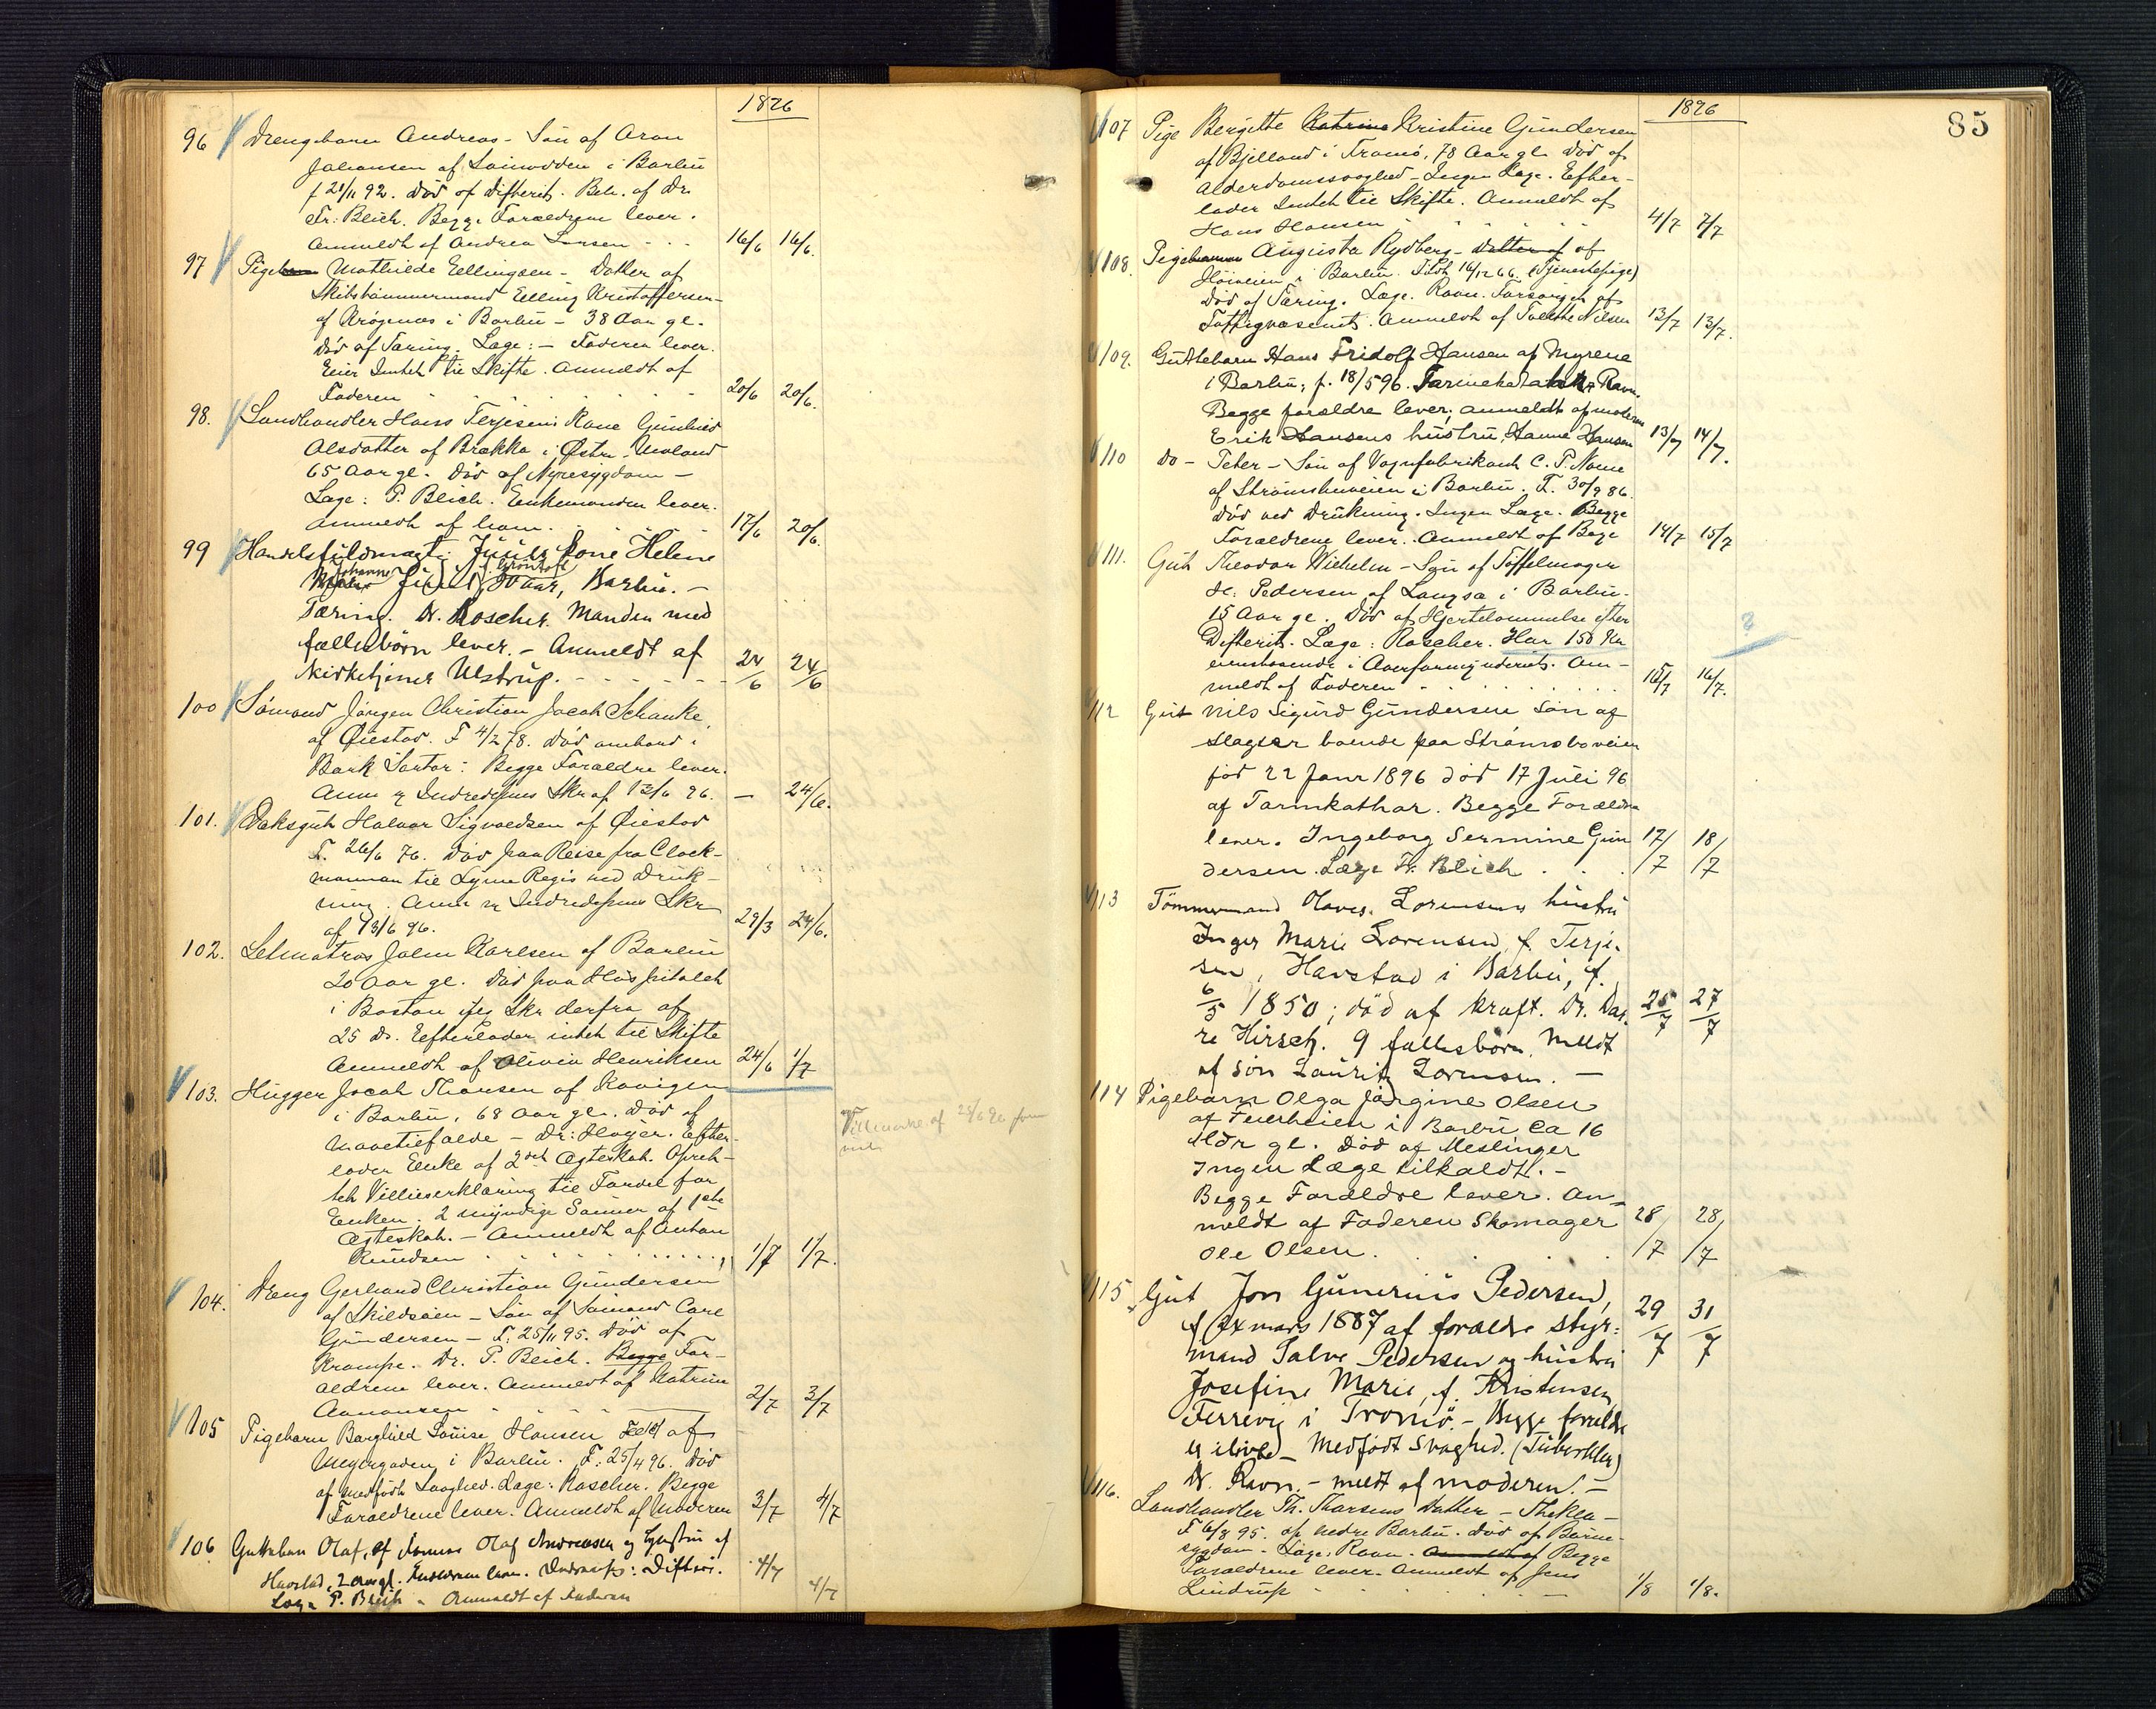 1896
96 Drengebarn Andreas - Søn af Aron
Johansen af Loimodden i Barbu
f 21/11 92. Død af Difterit. Beh. af Dr.
Fr: Bleich. Begge Forældrene lever.
Anmeldt af Andrea Larsen - - - 16/6 16/6.
97 Pigebarn Mathilde Eellingsen - Datter af
Skibstømmermand Eelling Kristoffersen
af Krøgenes i Barbu - 38 Aar gl.
Død af Tæring. Læge: - Faderen lever.
Eier Intet til Skifte. Anmeldt af
Faderen - - - 20/6 20/6.
98. Landhandler Hans Terjesens Kone Gunhild
Alsdatter af Brække i Østre Moland
65 Aar gl. Død af Nyresygdom -
Læge: P. Bleich. Enkemanden lever.
Anmeldt af ham. 17/6 20/6.
99 Handelsfuldmægtig Juuls Kone Helene
Johanne Juul, f. Grøntoft, 30 aar, Barbu. -
Tæring. Dr. Roscher. Manden med
fællesbørn lever. - Anmeldt af
Kirketjener Ulstrup. - - - 24/6 24/6
100 Sømand Jørgen Christian Jacob Schanke
af Øiestad. F 4/2 78. Død ombord i
Bark Sartor: Begge Forældre lever.
Anm. Indredepnes Skr af 13/6 96. - 24/6.
101. Dæksgut Halvor Sigvaldsen af Øiestad
F. 26/6 76. Død paa Reise fra Clack-
mannan til Lyme Regis ved Druk-
ning. Anm. Indredepnes Skr
af 13/6 96. 29/3 24/6.
102. Letmatros John Karlsen af Barbu
20 Aar gl. Død paa Hospitalet
i Boston ifig Skr derfra af
25 Ds. Eefterlader intet til Skifte
Anmeldt af Olivia Henriksen 24/6 1/7
103. Hugger Jacob Thorsen af Kovigen
i Barbu, 68 Aar gl. Død af
Mavetiefælde - Dr: Høyer. Efter-
lader Enke af 2det Ægteskab. Opret-
tet Villieserklæring til Fordel for
Enken. 2 myndige Sønner af 1ste
Ægteskab. - Anmeldt af Anton
Knudsen 1/7 1/7.
af 28/6 96
104. Dreng Gerhard Christian Gundersen
af Skildsøen - Søn af Sømand Carl
Gundersen - F: 25/11 95. Død af
Krampe. Dr. P. Bleich. Begge For-
ældrene lever. Anmeldt af Katrine
Aanonsen 2/7 3/7
105 Pigebarn Borghild Louise Hansen af
Meyergaden i Barbu. F: 25/4 96. Død
af medfødt Svaghed. Læge: Roscher. Begge
Forældrene lever. Anmeldt af Moderen 3/7 4/7
106 Guttebarn Olaf, af Olaf Andreasen og Hustru af
Havstad, 2 Aar gl. Forældrene lever. Dødsaars.: Difteri. 4/7
Læge P. Bleich - Anmeldt af Faderen 4/7
1896
85
107 Pige Bergitte Katrine Kristine Gundersen
af Bjelland i Tromø, 78 Aar gl. Død af
Alderdomssvaghed - Ingen Læge. Efter-
lader Intet til Skifte. Anmeldt af
Hans Hansen 4/7 7/7
108. Pigebarn Augusta Rydberg - Datter af af
Høiveien i Barbu. Født 16/12 66. (Tjenestepige)
Død af Tæring. Læge. Ravn. Forsørget af
Fattigvæsenet. Anmeldt af Tallette Nilsen 13/7 13/7.
109. Guttebarn Hans Fridolf Hansen af Myrene
i Barbu; f. 18/5 96. Tarmekatarrh. Ravn.
Begge forældre lever; anmeldt af moderen
Erik Hansens hustru, Hanna Hansen 13/7 14/7.
110 do - Peter - Søn af Vognfabrikant C. P. Nome
af Strømsbuveien i Barbu. F. 30/9 86.
Død ved Drukning. Ingen Læge. Begge
Forældrene lever. Anmeldt af Bege 14/7 15/7
111. Gut Theodor Wilhelm - Søn af Tøffelmager
H. Pedersen af Langsæ i Barbu.
15 Aar gl. Død af Hjertelammelse efter
Difterit. Læge: Roscher. Har 150 Kr
ennestaaende i Overformynderiet. An- ?
meldt af Faderen 15/7 16/7.
112 Gut Nils Sigurd Gundersen Søn af
Slagter boende paa Strømsboveien
fød 22 Janr 1896 død 17 Juli 96
af Tarmkathar. Begge Forældre
lever. Ingeborg Sermine Gun 17/7 18/7
dersen. Læge Fr. Bleich
113 Tømmermand Laves. Lorensens hustru
Inger Marie Lorensen, f. Terje-
sen, Havstad i Barbu, f.
6/5 1850; død af kræft. Dr. Daa- 25/7 27/7
re Hirsch. 9 fællesbørn. Meldt
af søn Lauritz Lorensen. -
114 Pigebarn Olga Jørgine Olsen
af Feierheien i Barbu Ca 16
Mdr gl. Død af Meslinger
Ingen Læge tilkaldt. -
Begge Forældre lever. An-
meldt af Faderen Skomager 28/7 28/7
Ole Olsen.
115 Gut Jon Gunerius Pedersen, 29/7 31/7
f mars 1887 af forældre styr-
mand Salve Pedersen og hustru
Josefine Marie, f. Kristensen,
Færvig i Tromø. - Begge forældre
er ilive - Medfødt svaghed. (Tuberkler)
Dr. Ravn. - meldt af moderen. -
116. Landhandler Th. Thorsens Datter - Thekla -
F 6/8 95. af nedre Barbu. Død af Børne-
sygdom. Læge: Ravn. Anmeldt af Begge
Forældrene lever. Anmeldt af Jens
Lindrup 1/8 1/8.